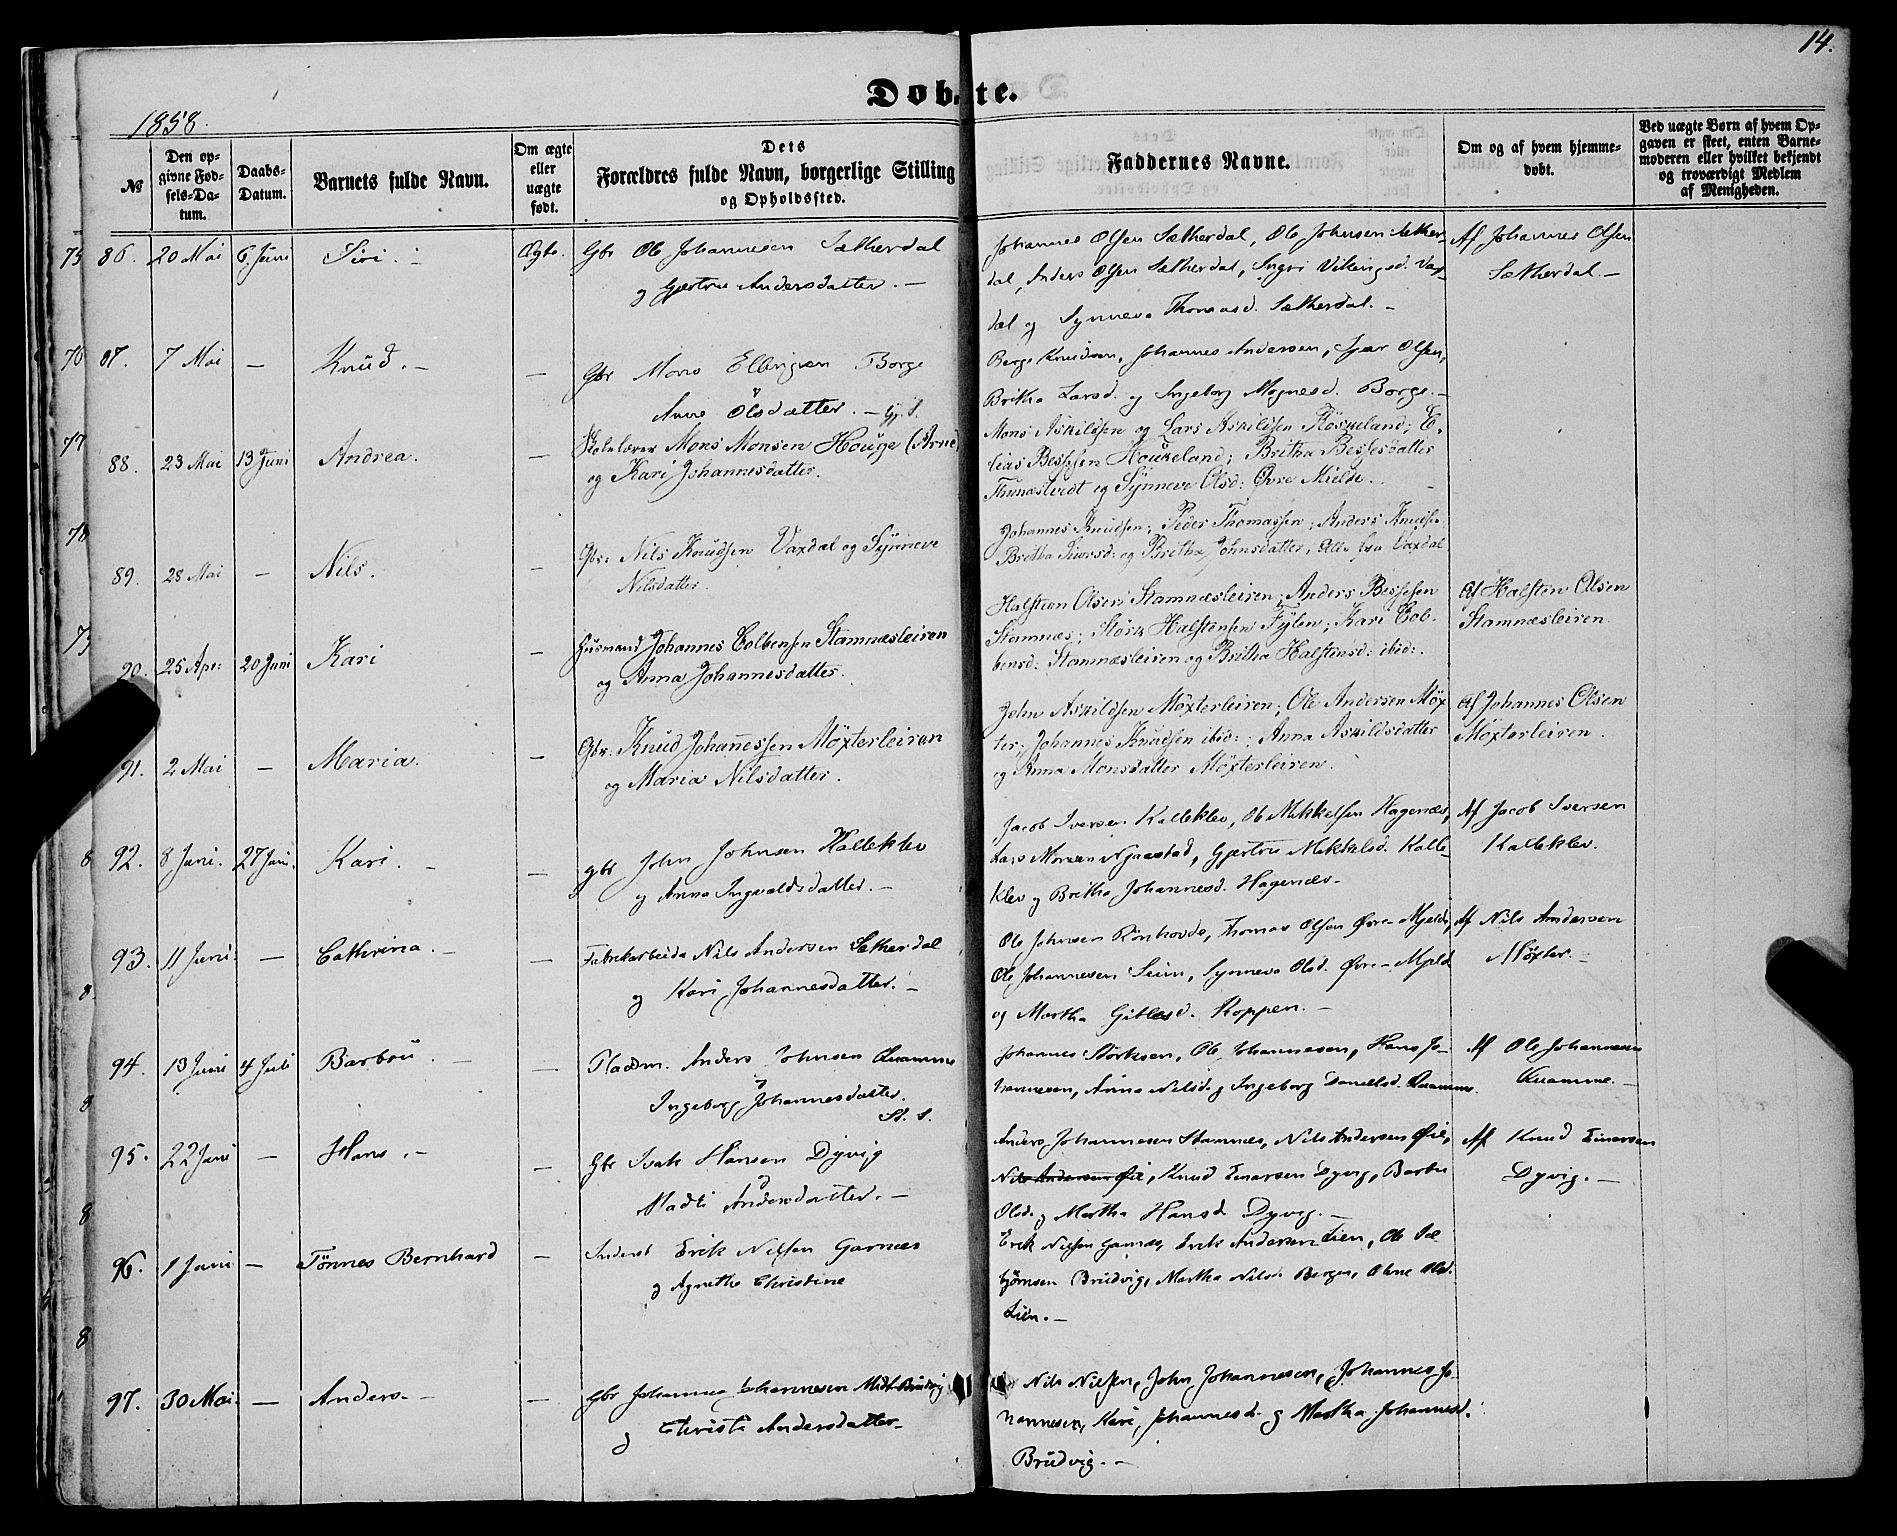 14.
Døbte.
1858.
No
Den opgivne Fødsels-Datum.
Daabs-Datum.
Barnets fulde Navn.
Om ægte eller uægte født.
Dets Forældres fulde Navn, borgerlige Stilling og Opholdssted.
Faddernes Navne.
Om og af hvem hjemmedøbt.
Ved uægte Børn af hvem Opgaven er skeet, enten Barnemoderen eller hvilket bekjendt og troværdigt Medlem af Menigheden.
75 86. 20 Mai 6 Juni Siri. - Ægte. Gbr Ole Johannesen Sætherdal
og Gjertru Andersdatter. -
Johannes Olsen Sætherdal, Ole Johnsen Sæther-
dal, Anders Olsen Sætherdal, Ingri Vikingsd. Vax-
dal og Synneva Thomasd. Sætherdal. -
Af Johannes Olsen
Sætherdal. -
76 87. 7 Mai - Knud. - - Gbr Mons Ellingsen Borge
Anne Olsdatter. -
Berge Knudsen, Johannes Andersen, Olsen,
Britha Larsd. og Ingeborg Magnesd. Borge. -
77 88. 23 Mai 13 Juni Andrea. - Skolelærer Mons Monsen Houge (Arne)
og Kari Johannesdatter.
Mons Askildsen og Lars Askildsen Røskeland; E-
lias Bessesen Houkeland; Britha Bessesdatter
Thunestvedt og Synneve Olsd: Øvre Mielde.
78 89. 28 Mai - Nils. - Gbr. Nils Knudsen Vaxdal og Synneve
Nilsdatter.
Johannes Knudsen; Peder Thomassen; Anders Knudsen
Britha Iversd: og Britha Johnsdatter, Alle fra Vaxdal
90. 25 Apr: 20 Juni Kari - Husmand Johannes Colbensen Stamnæsleiren
og Anna Johannesdatter.
Halsteen Olsen Stamnæsleiren; Anders Bessesen
Stamnæs; Størk Halstensen Fylen; Kari Col-
bensd: Stamnæsleiren og Britha Halstensd: ibid:.
Af Halsten Olsen
Stamnæsleiren
91. 2 Mai - Maria. - Gbr. Knud Johanessen Møxterleiren
og Maria Nilsdatter.
John Askildsen Møxterleiren; Ole Andersen Møx
ter; Johannes Knudsen ibid:; Anna Askildsdatter
og Anna Monsdatter Møxterleiren.
Af Johannes Olsen
Møxterleiren.
92. 8 Juni. 27 Juni. Kari. - - gbr John Johnsen Kalleklev
og Anna Ingvaldsdatter. -
Jacob Iversen Kalleklev, Ole Mikkelsen Hagenæs,
Lars Monsen Njaastad, Gjertru Mikkelsd. Kalle-
klev og Britha Johannesd. Hagenæs.
Af Jacob Iversen
Kalleklev.
93. 11 Juni. - Cathrina. - - Fabrikarbeider Nils Andersen Sætherdal
og Kari Johannesdatter. -
Ole Johnsen Rønhovde, Thomas Olsen Øvre-Mjelde,
Ole Johannesen Seim, Synneva Olsd. Øvre-Mjelde
og Martha Gitlesd. Koppen. -
Af Nils Andersen
Møxter. -
94. 13 Juni 4 Juli Barbou. - - Pladsm. Anders Johnsen Quamme
Ingeborg Johannesdatter.
St. S.
Johannes Størksen, Ole Johannesen, Hans Jo-
hannesen, Anna Nilsd. og Ingeborg Danielsd. Quamme.
Af Ole Johannesen
Quamme. -
95. 22 Juni - Hans. - - Gbr Isak Hansen Dyvig
Madli Andersdatter. -
Anders Johannesen Stamnæs, Nils Andersen Øie,
Nils Andersen Øie, Knud Einersen Dyvig, Barbu
Olsd. og Martha Hansd Dyvig. -
Af Knud Einersen
Dyvig. -
96. 1 Juni - Tönnes Bernhard - Inderst Erik Nilsen Garnæs
og Agnethe Christine
Erik Nilsen Garnæs, Erik Andersen Lien, Ole
Brudvig, Martha Nilsd. Bergen, Oline Olsd.
Lien. -
97. 30 Mai. - Anders. - - Gbr Johannes Johannesen Midt-Brudvig
og Christi Andersdatter.
Nils Nilsen, John Johannesen, Johannes Jo-
hannesen, Kari Johannesd. og Martha Johannesd.
Brudvig. -